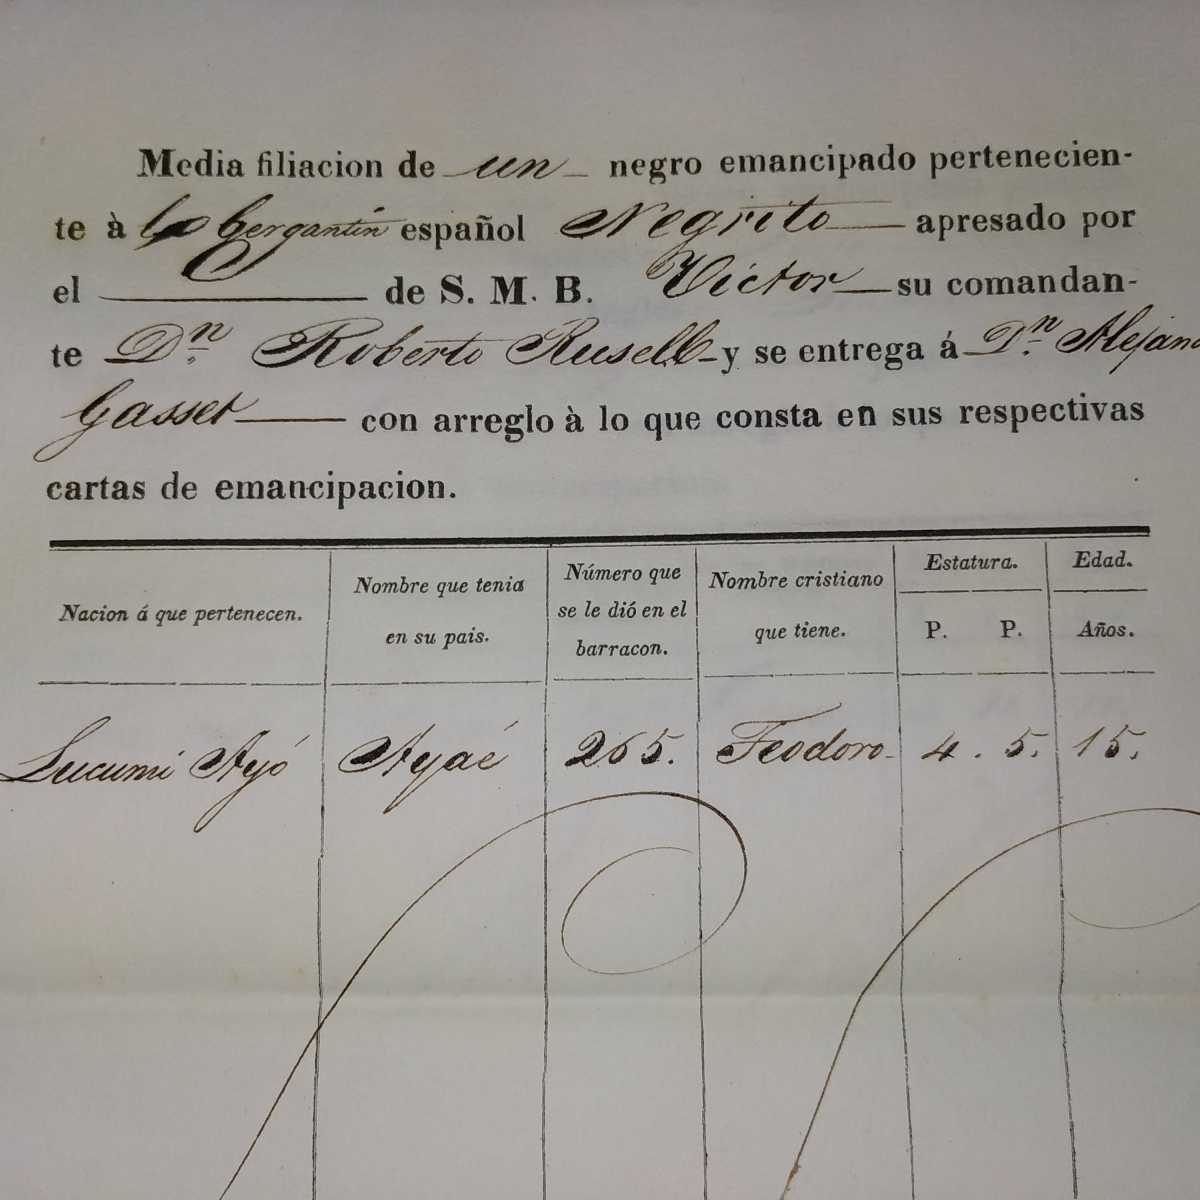 Media filiacion de un negro emancipado pertenecien-
te à bergantin español Negrito apresado por
el de S. M. B. Victor su comandan-
te Dn. Roberto Rusell y se entrega á Dn. Alejand
Gasset con arreglo à lo que consta en sus respectivas
cartas de emancipacion.
Nacion á que pertenecen. Nombre que tenia en su pais. Número que se le dió en el barracon. Nombre cristiano que tiene. Estatura. P. P. Edad. Años.
Lucumi Ayó Ayaé 265. Teodoro 4. 5. 15.